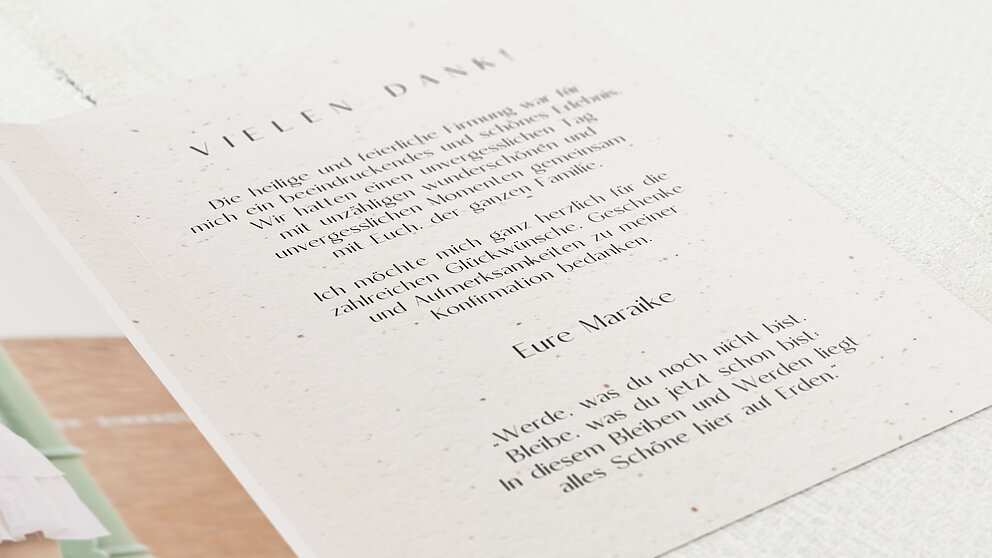 VIELEN DANK!
Die heilige und feierliche Firmung war für
mich ein beeindruckendes und schönes Erlebnis.
Wir hatten einen unvergesslichen Tag
mit unzähligen wunderschönen und
unvergesslichen Momenten gemeinsam
mit Euch, der ganzen Familie.
Ich möchte mich ganz herzlich für die
zahlreichen Glückwünsche, Geschenke
und Aufmerksamkeiten zu meiner
Konfirmation bedanken.
Eure Maraike
„Werde, was du noch nicht bist,
Bleibe, was du jetzt schon bist;
In diesem Bleiben und Werden liegt
alles Schöne hier auf Erden.“